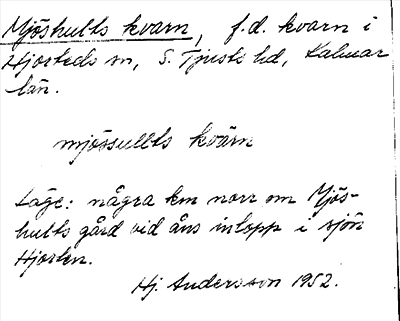 Mjöshults kvarn, f.d. kvarn i
Hjorteds sn, S. Tjusts hd, Kalmar
län.
mjössullts kvärn
Läge: några km norr om Mjös-
hults gård vid åns inlopp i sjön
Hjorten.
Hj. Andersson 1952.